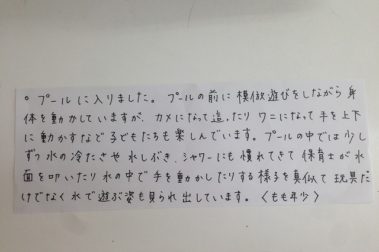 。プールに入りました。プールの前に模倣遊びをしながら身
体を動かしていますが、カメになって這ったりワニになって手を上下
に動かすなど子どもたちも楽しんでいます。プールの中では少し
ずつ水の冷たさや水しぶき、シャワーにも慣れてきて保育士が水
面を叩いたり水の中で手を動かしたりする様子を真似て玩具だ
けでなく水で遊ぶ姿も見られ出しています。〈もも年少〉